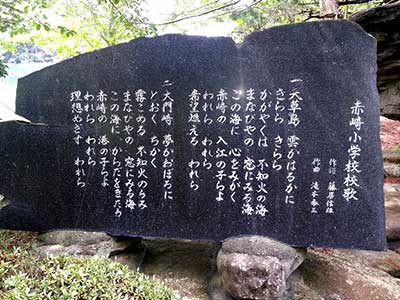 赤崎小学校校歌
作詞 藤原信恒
作曲 滝本泰三
一 天草島 雲かはるかに
きらら きらら
かがやくは 不知火の海
まなびやの 窓にみる海
この海に 心をみがく
赤崎の 入江の子らよ
われら われら われら
希望燃える われら
二 大門崎 夢かおぼろに
とおく ちかく
霧こめる 不知火のうみ
まなびやの 窓にみる海
この海に からだをきたう
赤崎の 港の子らよ
われら われら われら
理想めざす われら